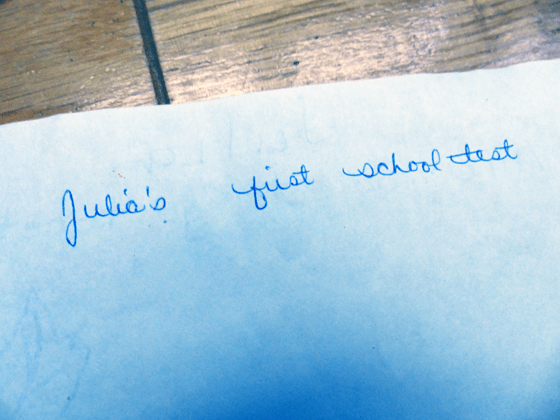 Julia's first school test